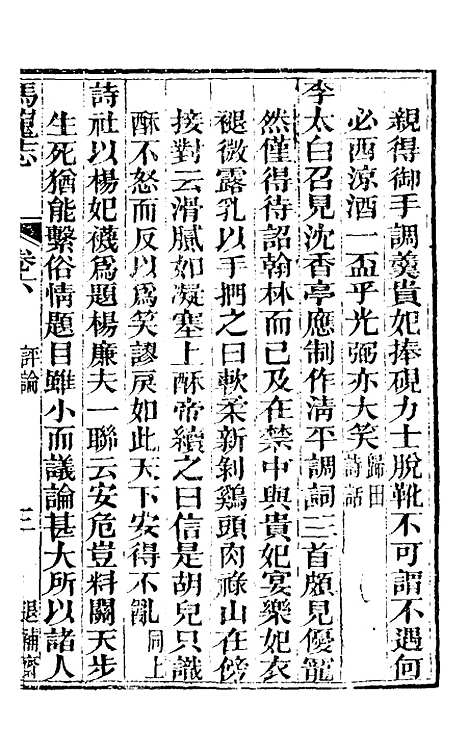 親得御手調羹貴妃捧硯力士脫靴不可謂不遇何
必西涼酒一盃乎光弼亦大笑歸田詩話
李太白召見沈香亭應制作清平調詞三首頗見優寵
然僅得待詔翰林而已及在禁中與貴妃宴樂妃衣
褪微露乳以手捫之曰軟柔新剝鷄頭肉祿山在傍
接對云滑膩如凝塞上酥帝續之曰信是胡兒只識
酥不怒而反以爲笑謬戾如此天下安得不亂同上
詩社以楊妃襪爲題楊廉夫一聯云安危豈料關天步
生死猶能繫俗情題目雖小而議論甚大所以諸人
馬嵬志 卷六 評論 三 退補齋